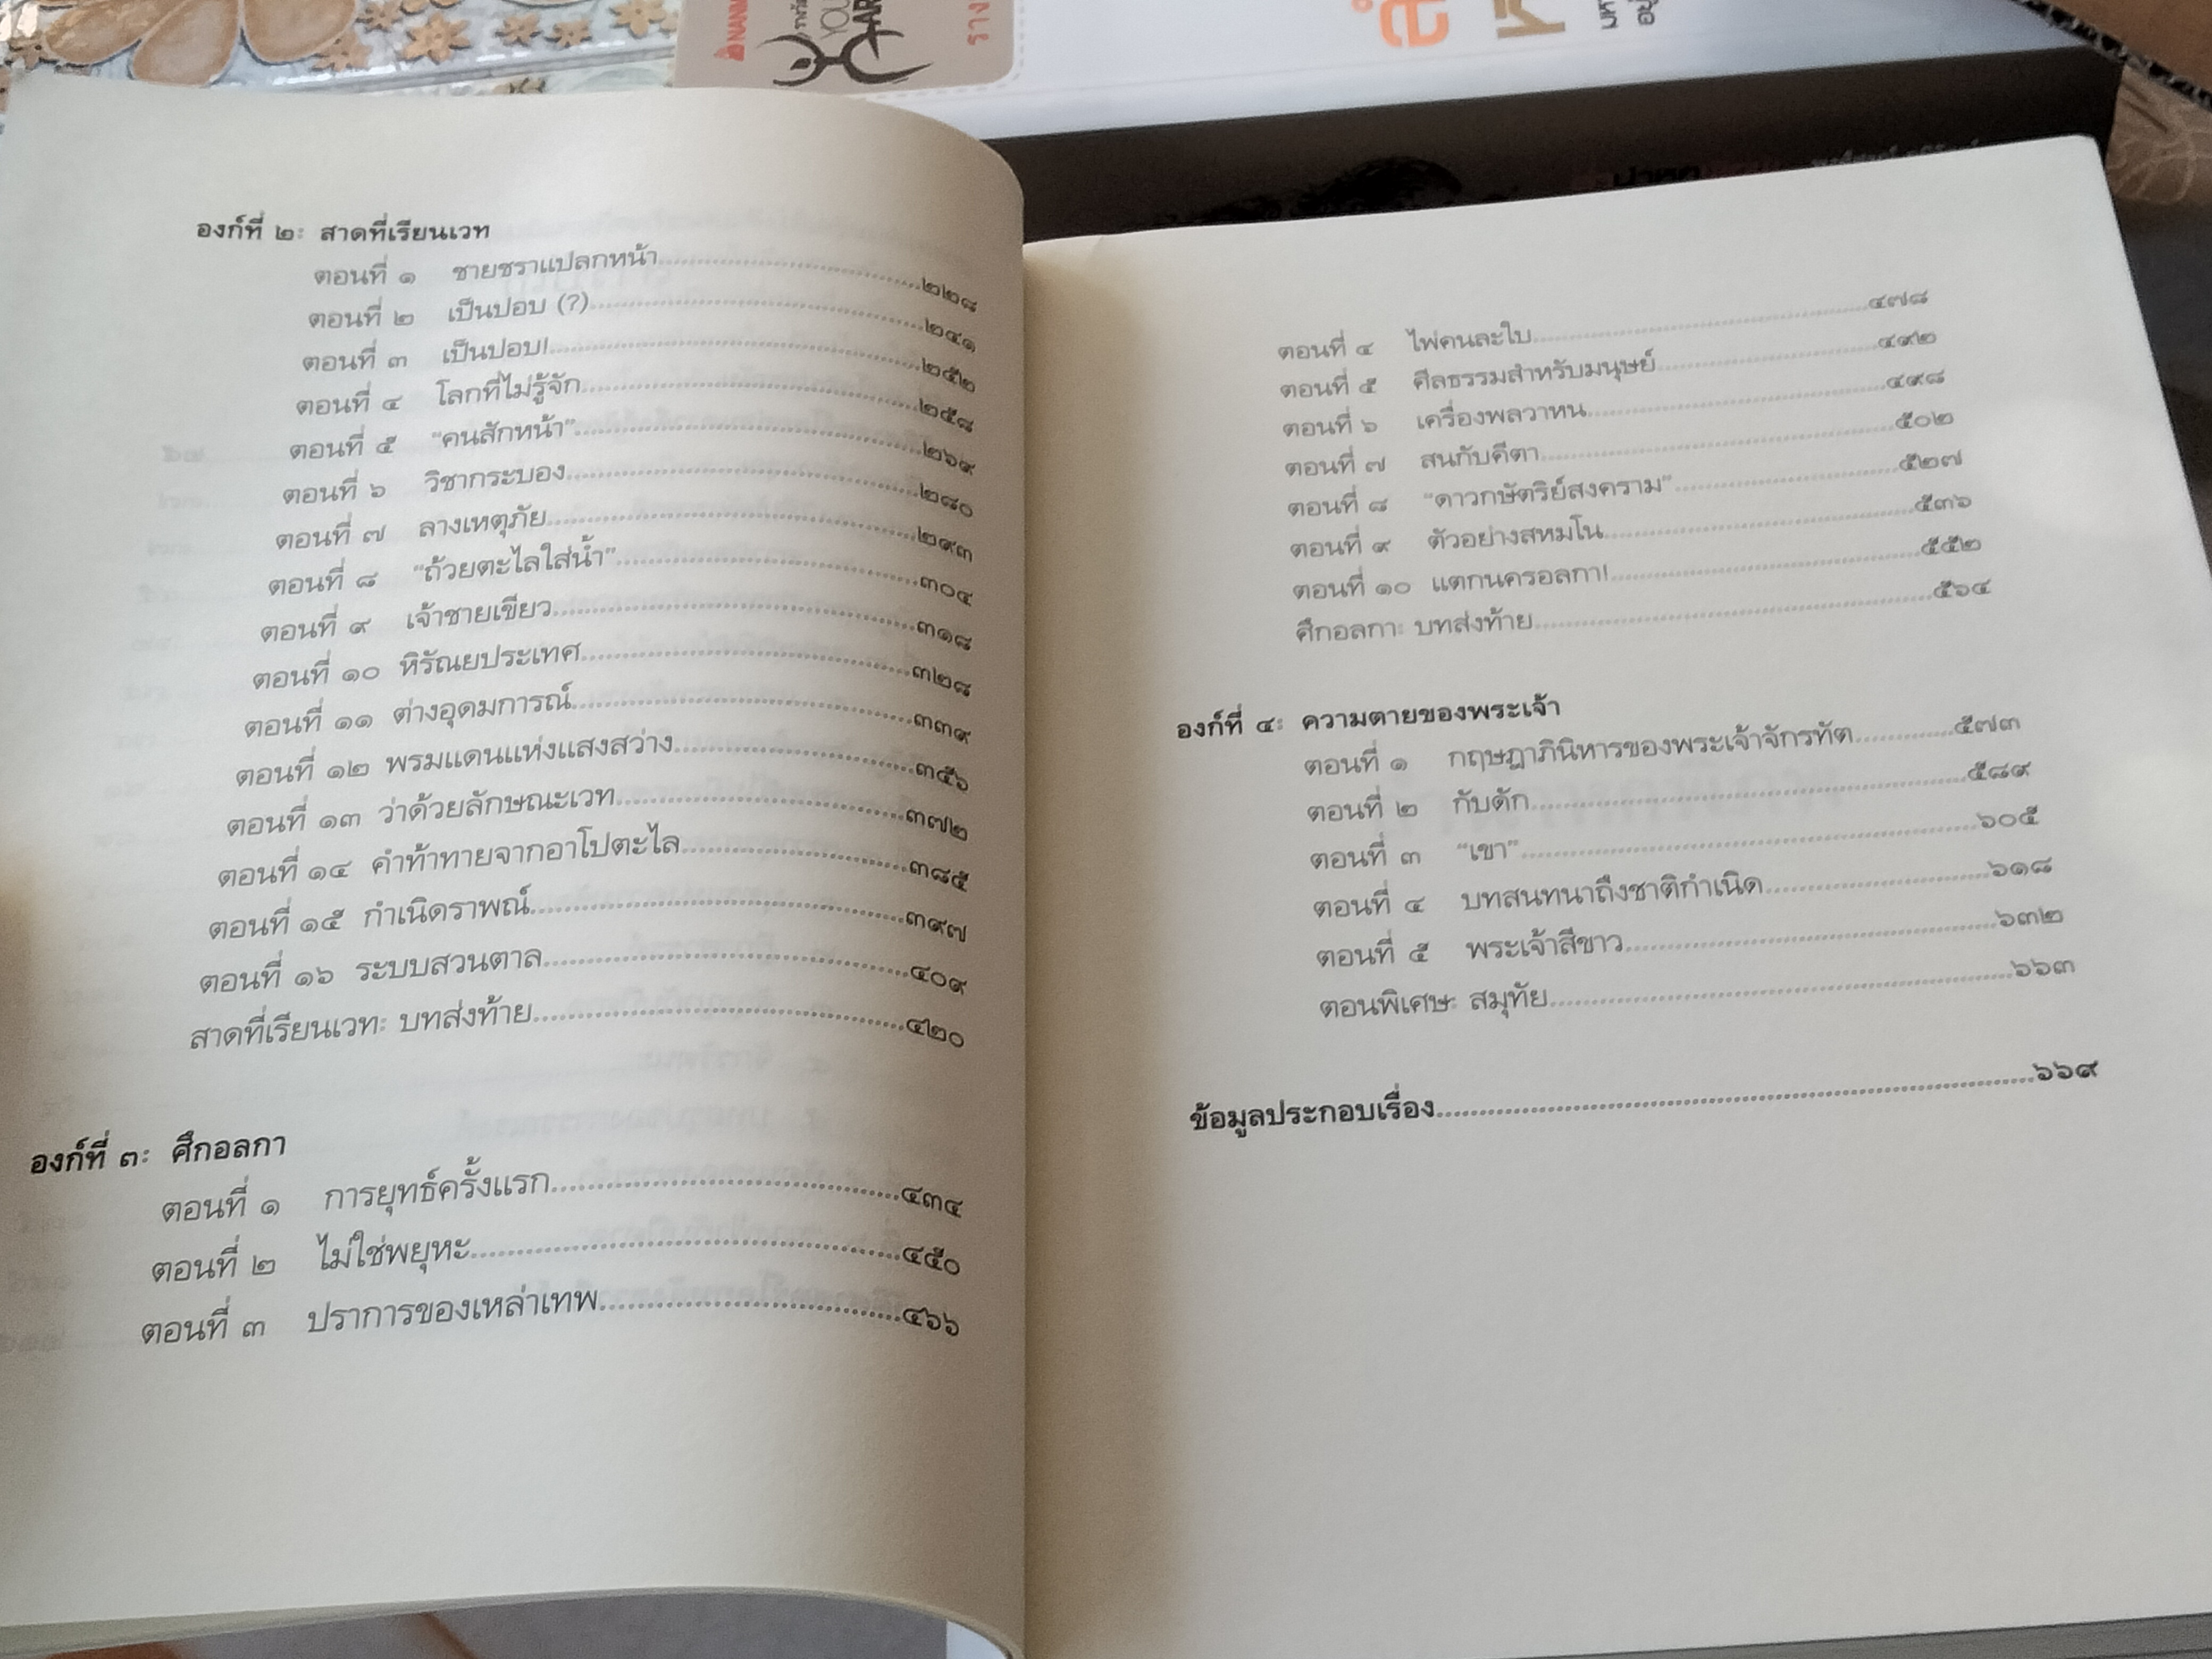 องก์ที่ ๒: สาดที่เรียนเวท
ตอนที่ ๑ ชายชราแปลกหน้า....................๒๒๘
ตอนที่ ๒ เป็นปอบ (?)....................๒๔๑
ตอนที่ ๓ เป็นปอบ!....................๒๕๒
ตอนที่ ๔ โลกที่ไม่รู้จัก....................๒๕๘
ตอนที่ ๕ “คนสักหน้า”....................๒๖๙
ตอนที่ ๖ วิชากระบอง....................๒๘๐
ตอนที่ ๗ ลางเหตุภัย....................๒๙๓
ตอนที่ ๘ “ถ้วยตะไลใส่น้ำ”....................๓๐๔
ตอนที่ ๙ เจ้าชายเขียว....................๓๑๘
ตอนที่ ๑๐ หิรัณยประเทศ....................๓๒๘
ตอนที่ ๑๑ ต่างอุดมการณ์....................๓๓๙
ตอนที่ ๑๒ พรมแดนแห่งแสงสว่าง....................๓๕๖
ตอนที่ ๑๓ ว่าด้วยลักษณะเวท....................๓๗๒
ตอนที่ ๑๔ คำท้าทายจากอาโปตะไล....................๓๘๕
ตอนที่ ๑๕ กำเนิดราพณ์....................๓๙๗
ตอนที่ ๑๖ ระบบสวนตาล....................๔๐๙
สาดที่เรียนเวท: บทส่งท้าย....................๔๒๐
องก์ที่ ๓: ศึกอลกา
ตอนที่ ๑ การยุทธ์ครั้งแรก....................๔๓๔
ตอนที่ ๒ ไม่ใช่พยุหะ....................๔๕๐
ตอนที่ ๓ ปราการของเหล่าเทพ....................๔๖๖
ตอนที่ ๔ ไพ่คนละใบ....................๔๗๘
ตอนที่ ๕ ศีลธรรมสำหรับมนุษย์....................๔๙๒
ตอนที่ ๖ เครื่องพลวาหน....................๔๙๘
ตอนที่ ๗ สนกับคีตา....................๕๐๒
ตอนที่ ๘ “ดาวกษัตริย์สงคราม”....................๕๒๗
ตอนที่ ๙ ตัวอย่างสหมโน....................๕๓๖
ตอนที่ ๑๐ แตกนครอลกา!....................๕๕๒
ศึกอลกา: บทส่งท้าย....................๕๖๔
องก์ที่ ๔: ความตายของพระเจ้า
ตอนที่ ๑ กฤษฎาภินิหารของพระเจ้าจักรทัต....................๕๗๓
ตอนที่ ๒ กับดัก....................๕๘๙
ตอนที่ ๓ “เขา”....................๖๐๕
ตอนที่ ๔ บทสนทนาถึงชาติกำเนิด....................๖๑๘
ตอนที่ ๕ พระเจ้าสีขาว....................๖๓๒
ตอนพิเศษ: สมุทัย....................๖๖๓
ข้อมูลประกอบเรื่อง....................๖๖๙